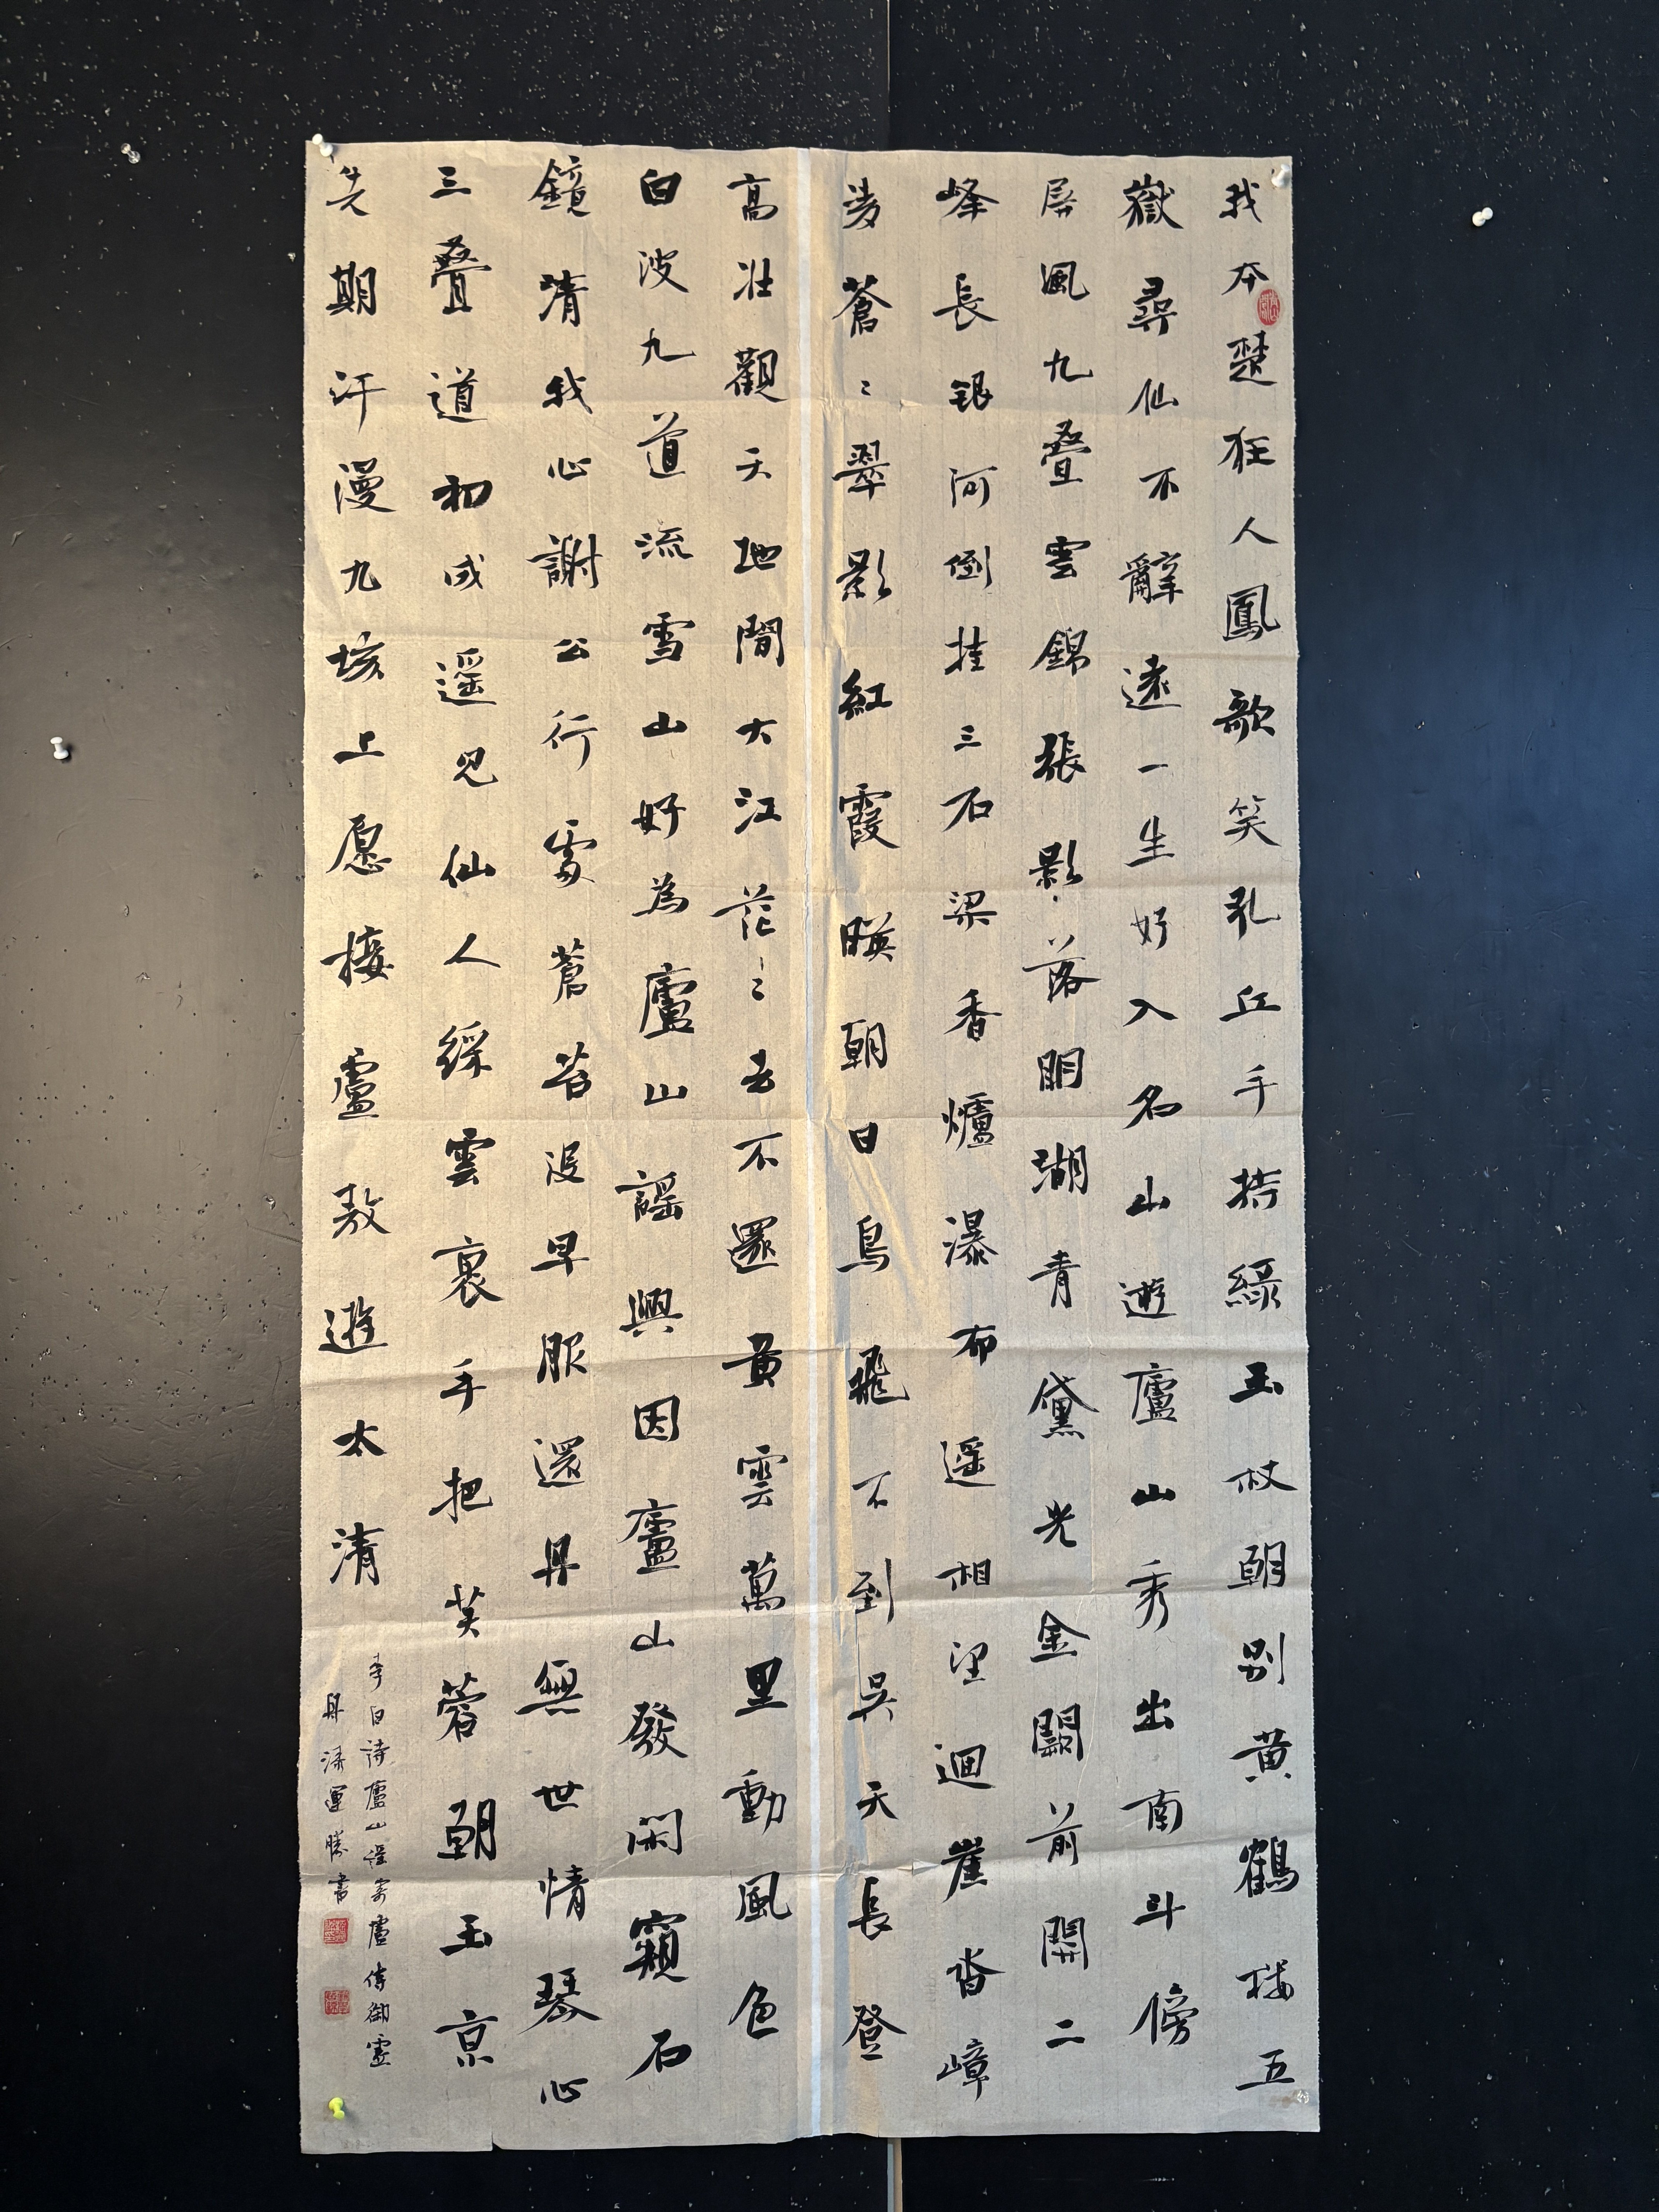 我本楚狂人鳳歌笑孔丘手持綠玉杖朝別黄鶴楼五
嶽尋仙不辭遠一生好入名山遊廬山秀出南斗傍
屏風九叠雲錦張影落明湖青黛光金闕前開二
峰長银河倒挂三石梁香爐瀑布遥相望迴崖沓嶂
凌蒼〻翠影紅霞暎朝日鳥飛不到吴天長登
高壮觀天地間大江茫〻去不還黄雲萬里動風色
白波九道流雪山好為廬山謡興因廬山發閑窺石
鏡清我心謝公行處蒼苔没早服還丹無世情琴心
三叠道初成遥見仙人綵雲裏手把芙蓉朝玉京
先期汗漫九垓上愿接盧敖遊太清
李白詩廬山謡寄盧侍御虚
舟 運勝書